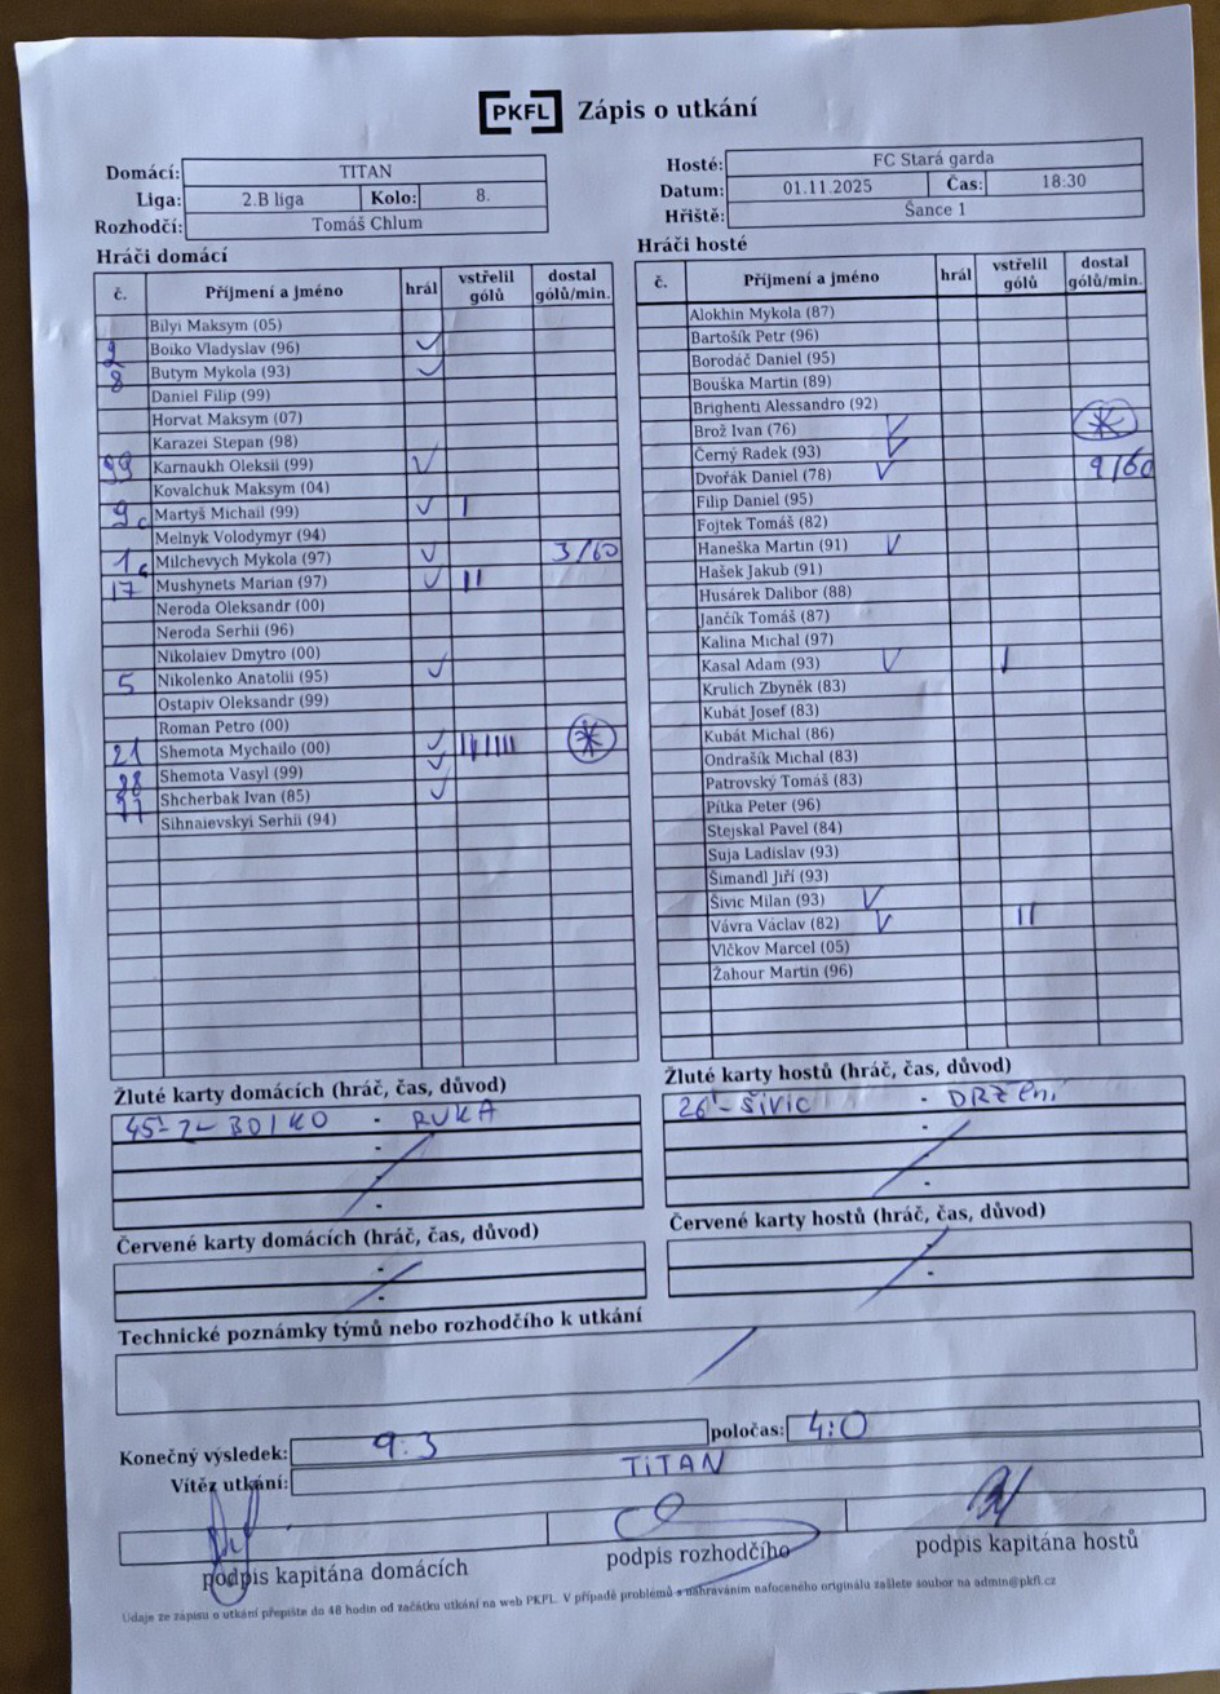 PKFL Zápis o utkání
Domácí: TITAN
Liga: 2.B liga Kolo: 8.
Rozhodčí: Tomáš Chlum
Hosté: FC Stará garda
Datum: 01.11.2025 Čas: 18:30
Hřiště: Šance 1
Hráči domácí
č. Příjmení a jméno hrál vstřelil gólů dostal gólů/min.
Bilyi Maksym (05)
2 Boiko Vladyslav (96)
8 Butym Mykola (93)
Daniel Filip (99)
Horvat Maksym (07)
Karazei Stepan (98)
99 Karnaukh Oleksii (99)
Kovalchuk Maksym (04)
9 c Martyš Michail (99) I
Melnyk Volodymyr (94)
1 Milchevych Mykola (97) 3/60
17 Mushynets Marian (97) II
Neroda Oleksandr (00)
Neroda Serhii (96)
Nikolaiev Dmytro (00)
5 Nikolenko Anatolii (95)
Ostapiv Oleksandr (99)
Roman Petro (00)
21 Shemota Mychailo (00) IIIIII
Shemota Vasyl (99)
Shcherbak Ivan (85)
Sihnaievskyi Serhii (94)
Hráči hosté
č. Příjmení a jméno hrál vstřelil gólů dostal gólů/min.
Alokhin Mykola (87)
Bartošík Petr (96)
Borodáč Daniel (95)
Bouška Martin (89)
Brighenti Alessandro (92)
Brož Ivan (76)
Černý Radek (93)
Dvořák Daniel (78) 9/60
Filip Daniel (95)
Fojtek Tomáš (82)
Haneška Martin (91)
Hašek Jakub (91)
Husárek Dalibor (88)
Jančík Tomáš (87)
Kalina Michal (97)
Kasal Adam (93) I
Krulich Zbyněk (83)
Kubát Josef (83)
Kubát Michal (86)
Ondrašík Michal (83)
Patrovský Tomáš (83)
Pitka Peter (96)
Stejskal Pavel (84)
Suja Ladislav (93)
Šimandl Jiří (93)
Šivic Milan (93)
Vávra Václav (82) II
Vlčkov Marcel (05)
Žahour Martin (96)
Žluté karty domácích (hráč, čas, důvod)
45' 2- BOIKO - RUKA
Žluté karty hostů (hráč, čas, důvod)
26' - ŠIVIC - DRŽENÍ
Červené karty domácích (hráč, čas, důvod)
Červené karty hostů (hráč, čas, důvod)
Technické poznámky týmů nebo rozhodčího k utkání
Konečný výsledek: 9:3 poločas: 4:0
Vítěz utkání: TITAN
podpis kapitána domácích podpis rozhodčího podpis kapitána hostů
Údaje ze zápisu o utkání přepište do 48 hodin od začátku utkání na web PKFL. V případě problémů s nahráváním nafoceného originálu zašlete soubor na admin@pkfl.cz